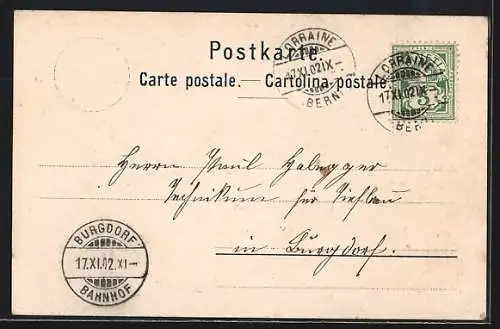 Postkarte.
Carte postale. — Cartolina postale.
LORRAINE
17.XI.02 IX-
(BERN)
LORRAINE
17.XI.02 IX-
(BERN)
5
Herrn Paul Habegger
Technikum für Tiefbau
in Burgdorf.
BURGDORF
17.XI.02.XI-
BAHNHOF